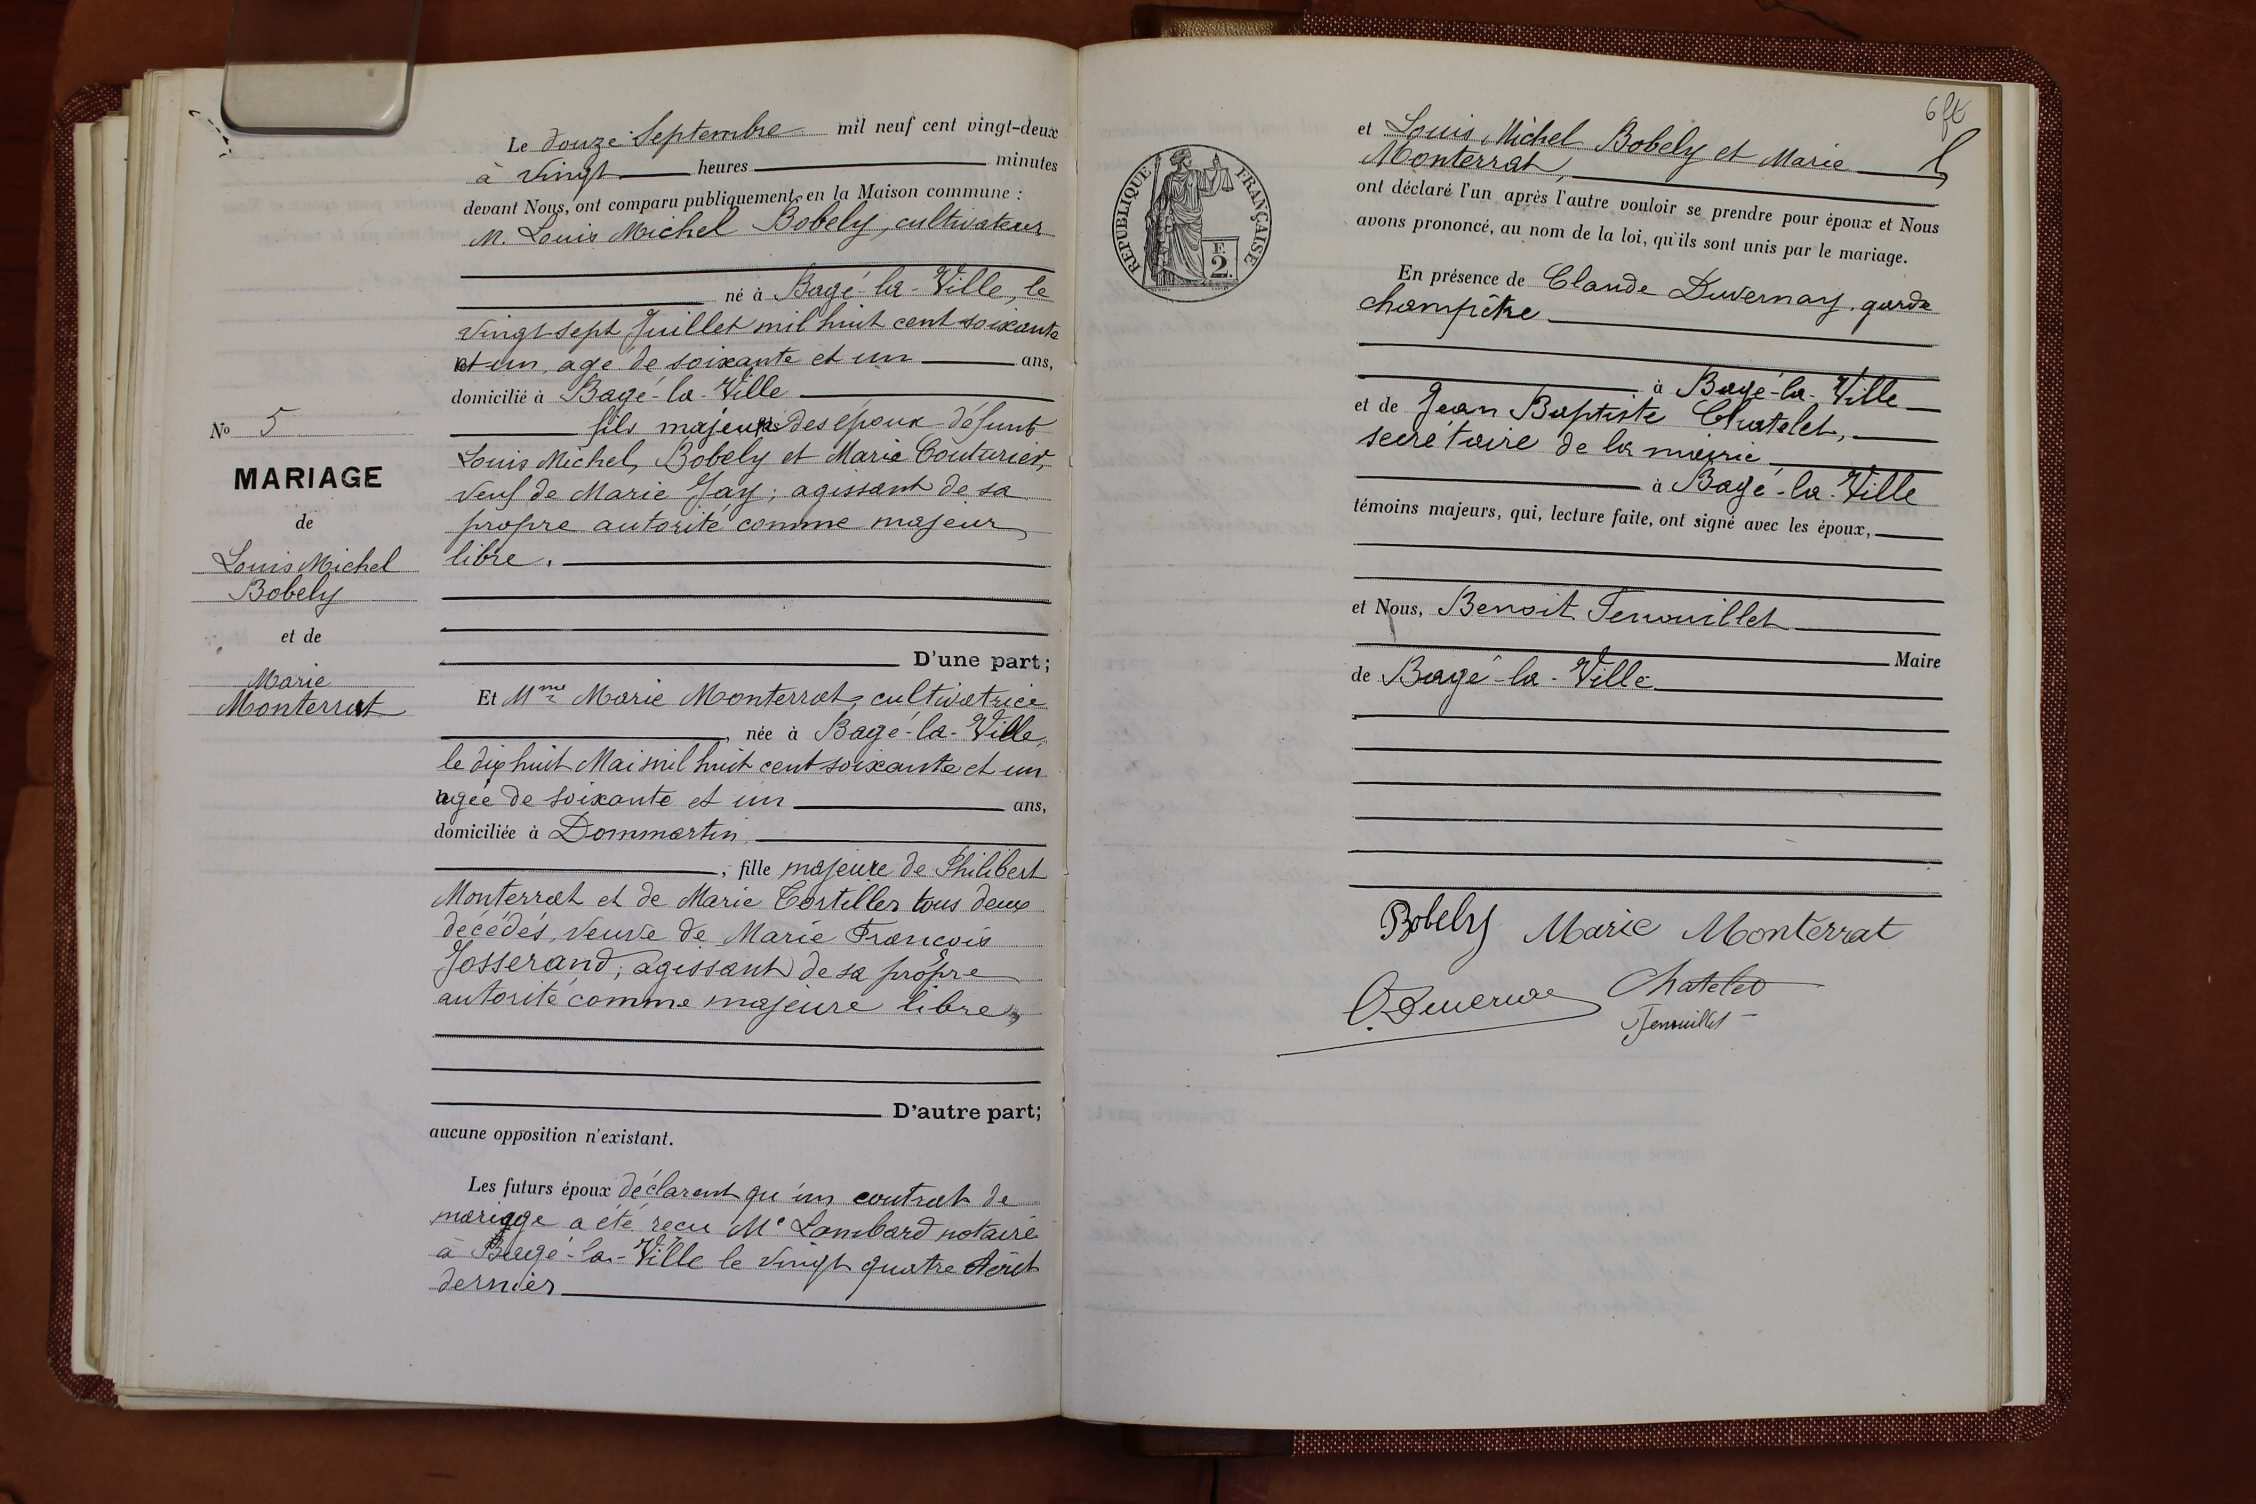 Le douze Septembre mil neuf cent vingt-deux
à vingt heures minutes
devant Nous, ont comparu publiquement en la Maison commune :
M. Louis Michel Bobely, cultivateur
né à Bagé-la-Ville, le
vingt sept Juillet mil huit cent soixante
et un, agé de soixante et un ans,
domicilié à Bagé-la-Ville
fils majeur des époux défunt
Louis Michel Bobely et Marie Couturier,
veuf de Marie Jay; agissant de sa
propre autorité comme majeur
libre.
D'une part;
No 5
MARIAGE
de
Louis Michel
Bobely
et de
Marie
Monterrat
Et Mme Marie Monterrat, cultivatrice
, née à Bagé-la-Ville,
le dix huit Mai mil huit cent soixante et un
agée de soixante et un ans,
domiciliée à Dommartin
, fille majeure de Philibert
Monterrat et de Marie Tortiller tous deux
décédés, veuve de Marie François
Josserand; agissant de sa propre
autorité comme majeure libre
D'autre part;
aucune opposition n'existant.
Les futurs époux déclarent qu'un contrat de
mariage a été reçu Me Lombard notaire
à Bagé-la-Ville le vingt quatre Août
dernier
6 ft
RÉPUBLIQUE FRANÇAISE
F.
2.
et Louis Michel Bobely et Marie
Monterrat,
ont déclaré l'un après l'autre vouloir se prendre pour époux et Nous
avons prononcé, au nom de la loi, qu'ils sont unis par le mariage.
En présence de Claude Duvernay, garde
champêtre
à Bagé-la-Ville
et de Jean Baptiste Chatelet,
secrétaire de la mairie
à Bagé-la-Ville
témoins majeurs, qui, lecture faite, ont signé avec les époux,
et Nous, Benoit Fenouillet
Maire
de Bagé-la-Ville
Bobely Marie Monterrat
Chatelet
Fenouillet